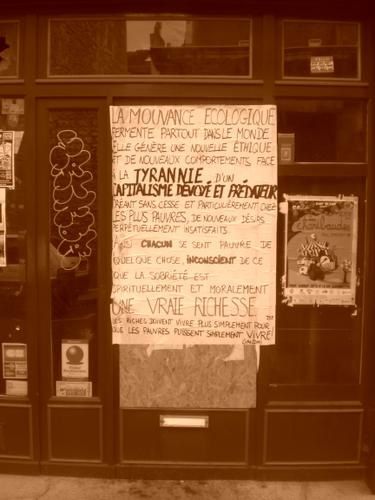 LA MOUVANCE ECOLOGIQUE
FERMENTE PARTOUT DANS LE MONDE
ELLE GÉNÈRE UNE NOUVELLE ÉTHIQUE
ET DE NOUVEAUX COMPORTEMENTS FACE
À LA TYRANNIE D'UN
CAPITALISME DÉVOYÉ ET PRÉDATEUR
CRÉANT SANS CESSE ET PARTICULIÈREMENT CHEZ
LES PLUS PAUVRES, DE NOUVEAUX DÉSIRS
PERPÉTUELLEMENT INSATISFAITS
AINSI CHACUN SE SENT PAUVRE DE
QUELQUE CHOSE, INCONSCIENT DE CE
QUE LA SOBRIÉTÉ EST
SPIRITUELLEMENT ET MORALEMENT
UNE VRAIE RICHESSE
LES RICHES DOIVENT VIVRE PLUS SIMPLEMENT POUR
QUE LES PAUVRES PUISSENT SIMPLEMENT VIVRE